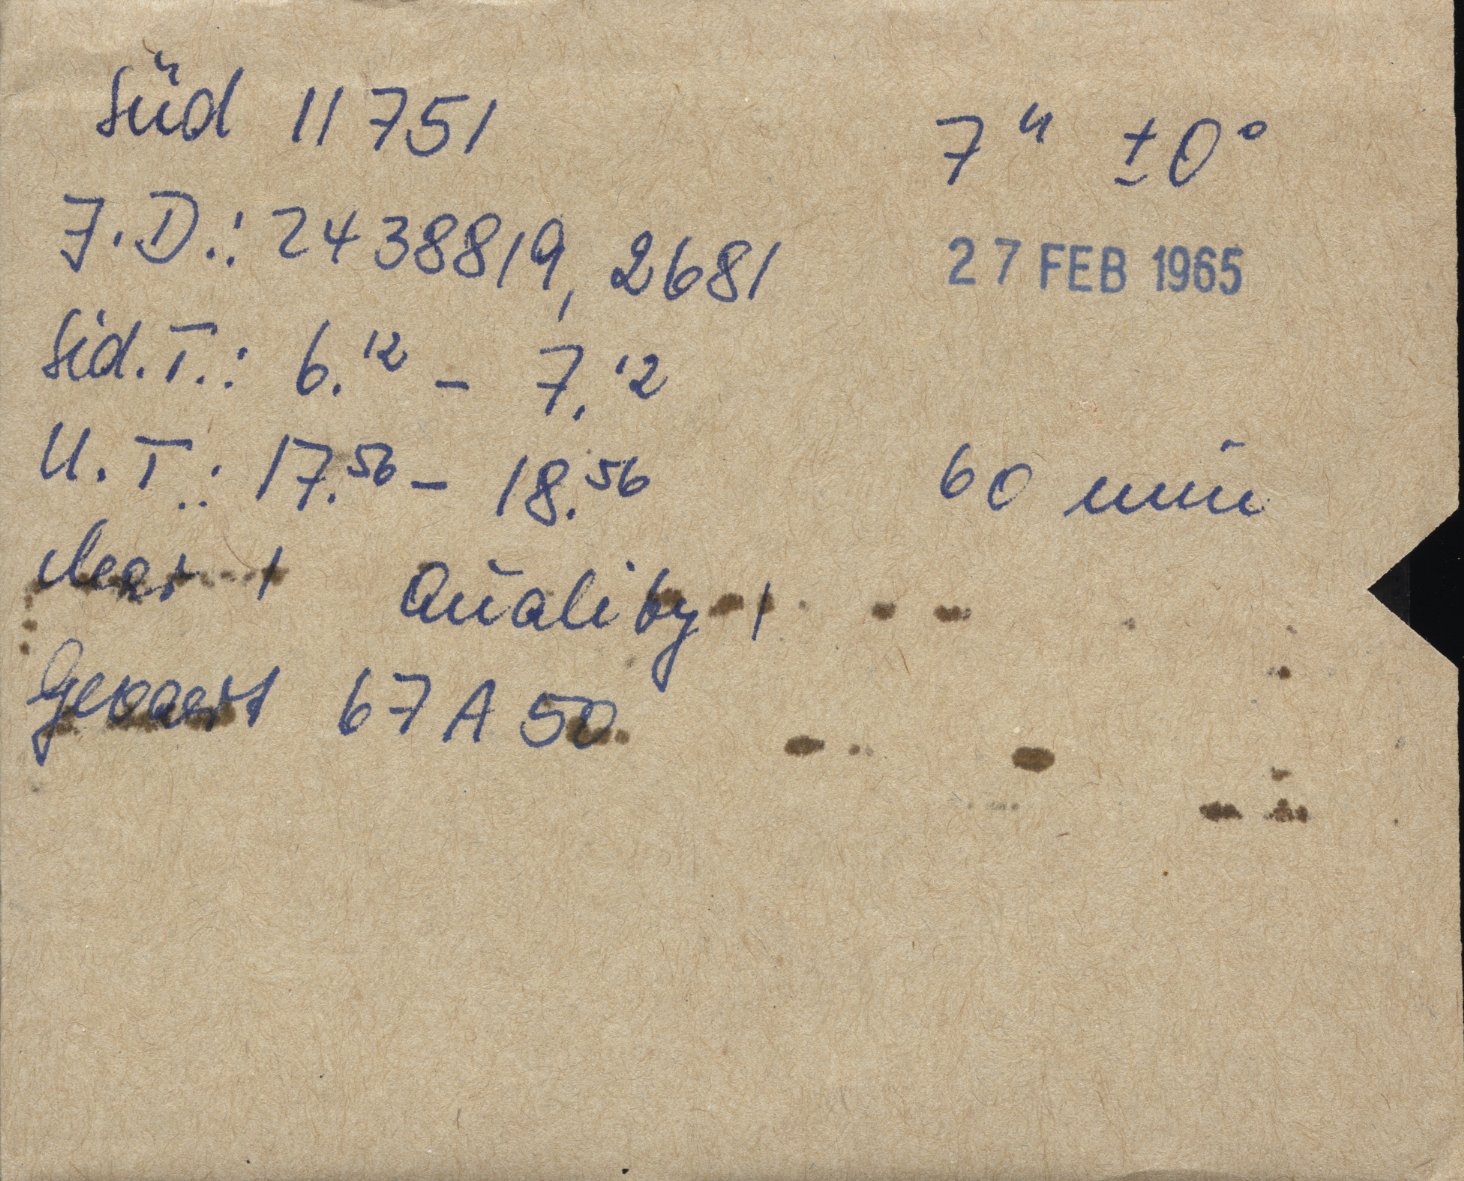 Süd 11751
7ʰ ±0°
J.D.: 2438819,2681
27 FEB 1965
Sid.T.: 6.¹² – 7.¹²
U.T.: 17.⁵⁶ – 18.⁵⁶
60 min
clear 1 Quality 1
Gevaert 67 A 50